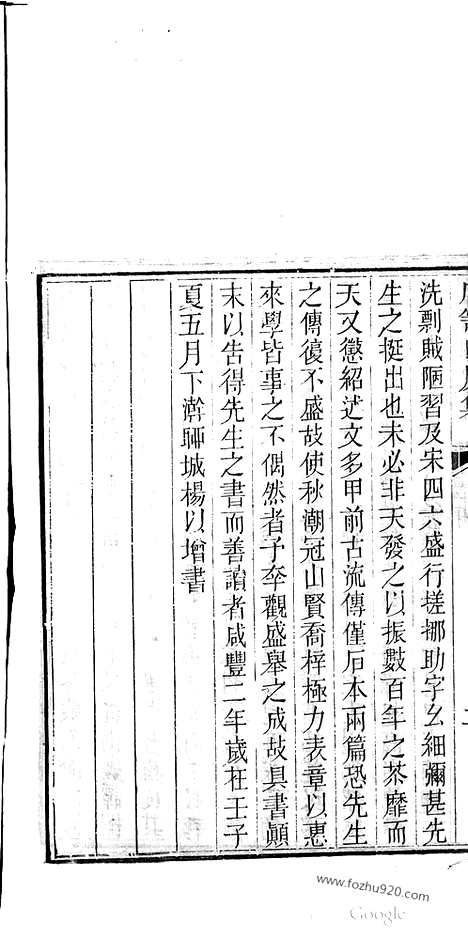 洗剽賊陋習及宋四六盛行搓挪助字幺細彌甚先
生之挺出也未必非天發之以振數百年之茶靡而
天又懲紹述文多甲前古流傳僅石本兩篇恐先生
之傳復不盛故使秋潮冠山賢喬梓極力表章以惠
來學皆事之不偶然者予幸觀盛舉之成故具書顛
末以告得先生之書而善讀者咸豐二年歲在壬子
夏五月下澣聊城楊以增書
www.fozhu920.com
Google